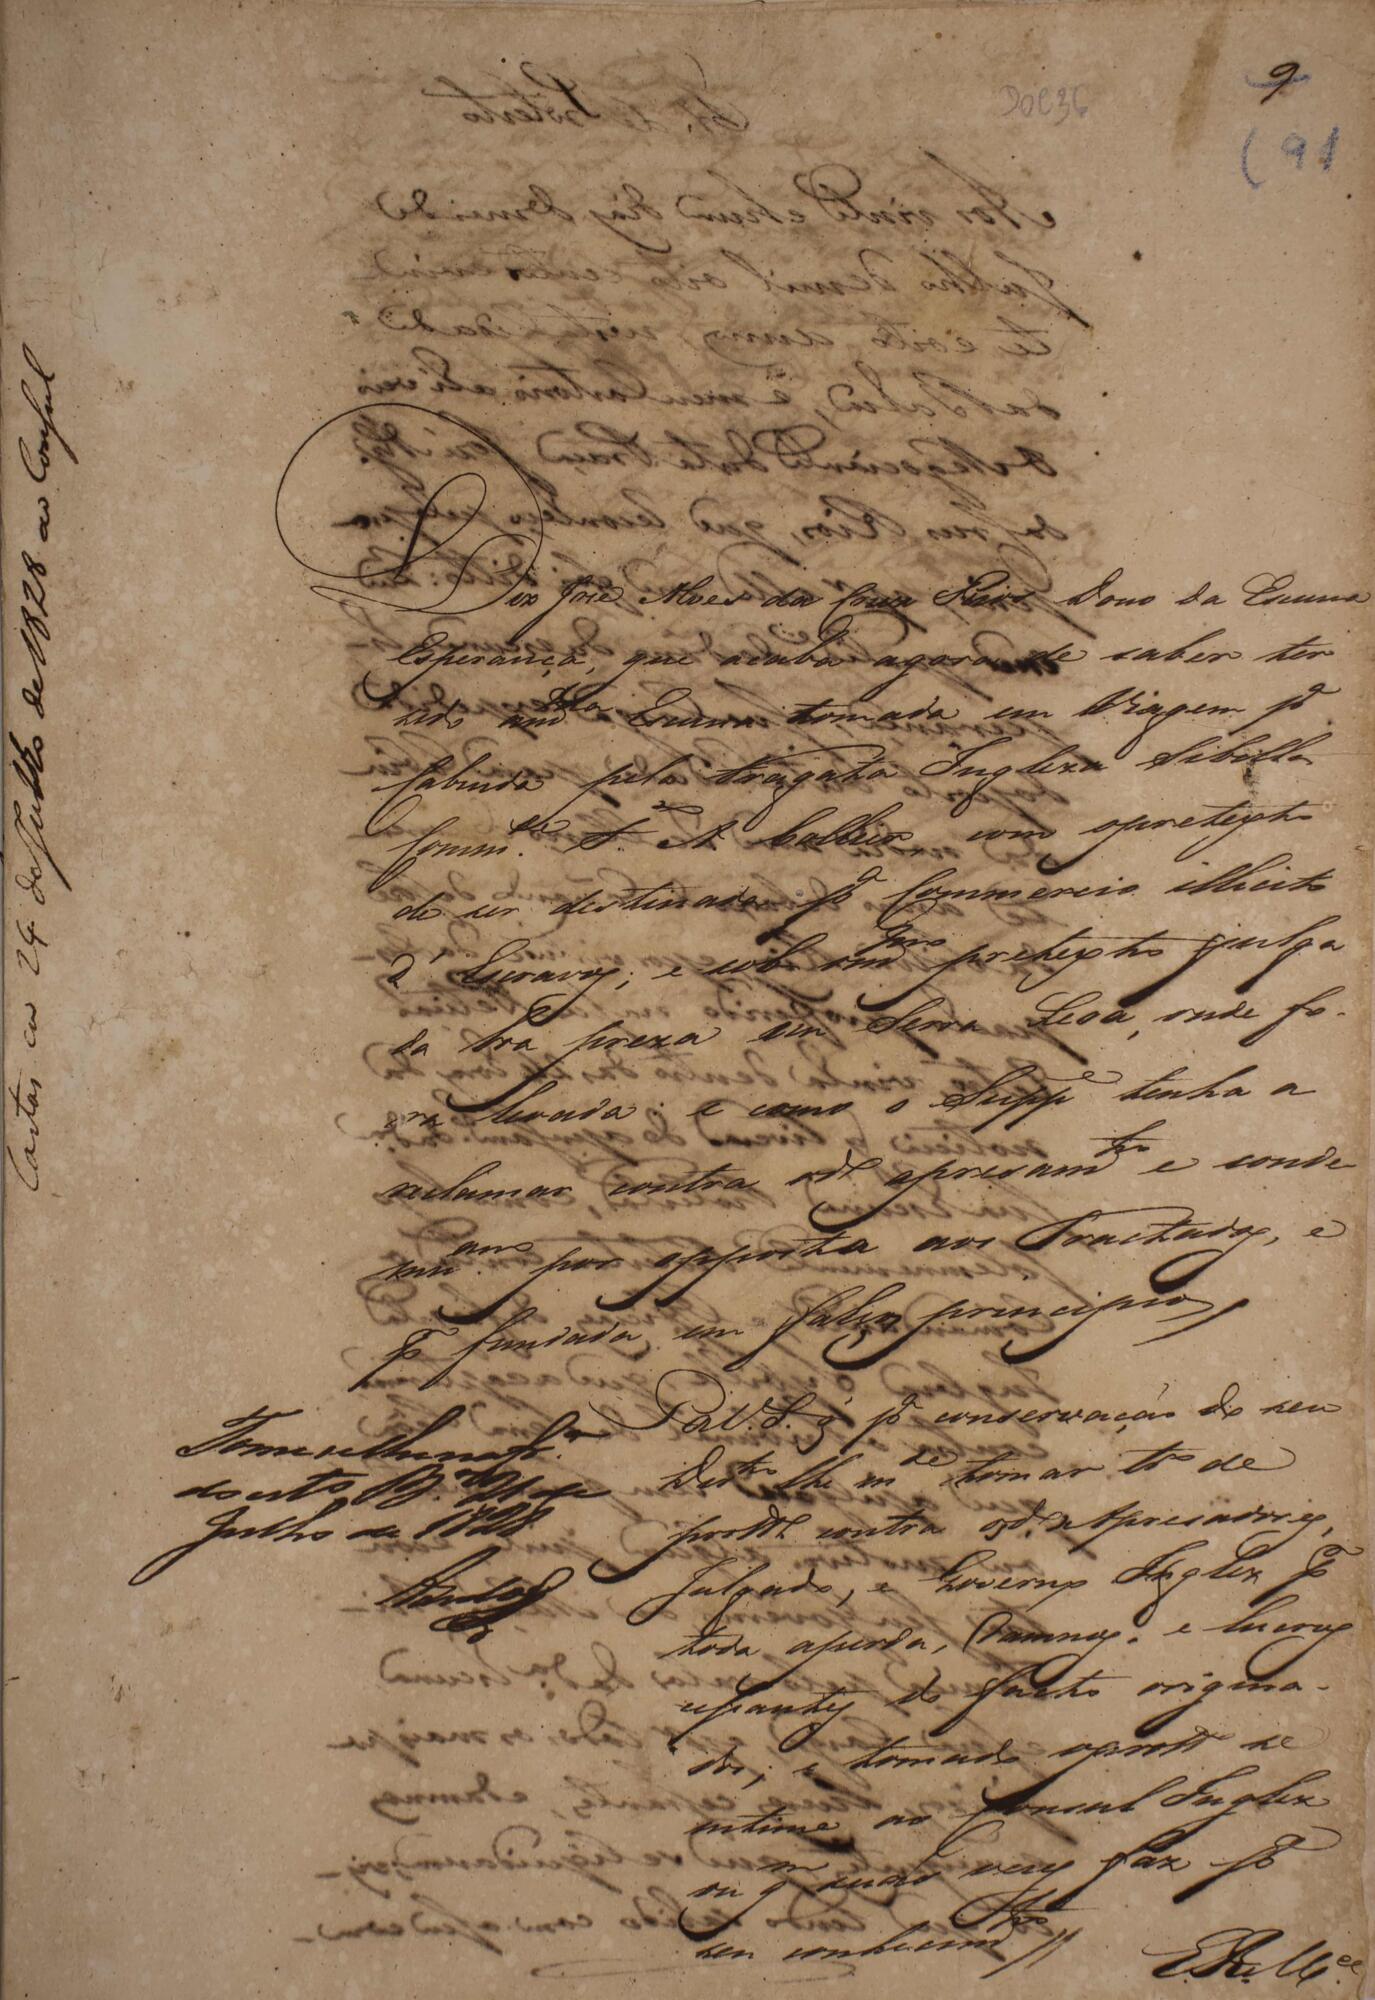 9
Doc 36
(91
Cartas em 24 de Julho de 1828 ao Consul
Diz Jozé Alves da Cruz Rios Dono da Escuna
Esperança, que acaba agora de saber ter
sido a m.ma Escuna tomada em Viagem p.a
Cabinda pela Fragata Ingleza Sibilla
Comm.e F. A. Collier, com o pretexto
de ser destinada p.a Commercio illicito
d'Escravos; e sob o m.mo pretexto julga
da boa preza em Serra Leoa, onde fo-
ra levada: e como o Supp.e tenha a
reclamar contra o d.o apresam.to e conde
mn.am por opposta aos Tractados, e
p.r fundada em falsos principios //
P. a V. S. q' p.a conservação do seu
Dir.to lhe m.de tomar tr.o de
prot.to contra o d.o Apresadores,
Julgado, e Governo Inglez p.r
toda a perda, Damnos, e lucros
cessantes do facto origina-
dos; e tomado o prot.to se
intime ao Consul Inglez
ou q.m suas vezes faz p.a
seu conhecim.to //
E. R. M.ce
Julho de 1828